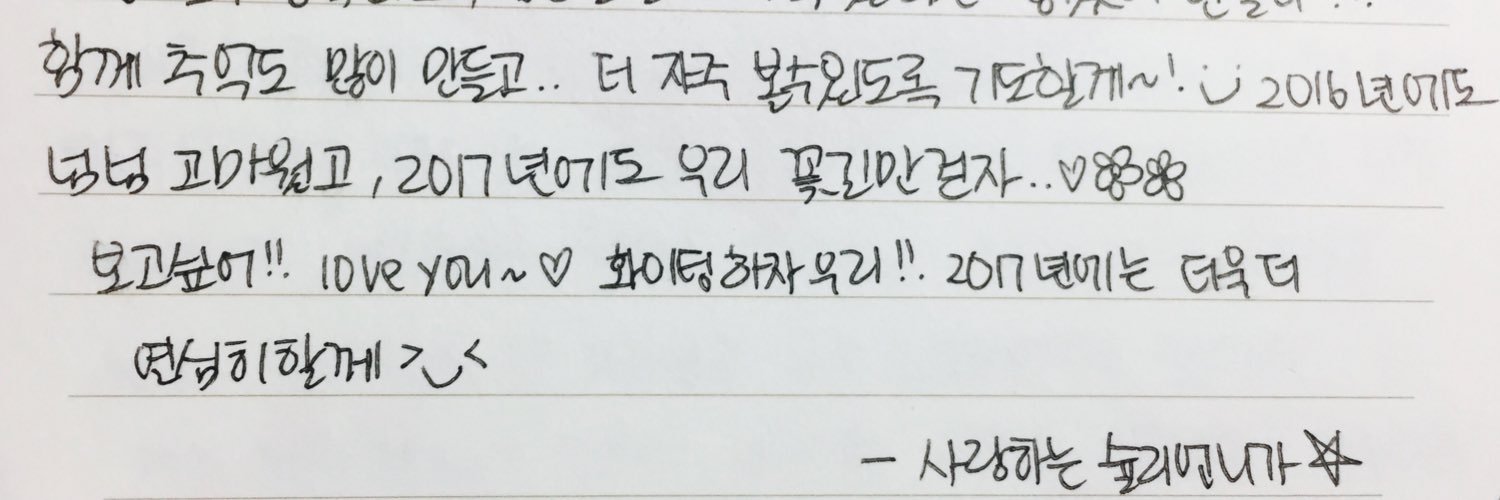 함께 추억도 많이 만들고.. 더 자주 볼수있도록 기도할게~! 2016년에도
넘넘 고마웠고, 2017년에도 우리 꽃길만 걷자..♡
보고싶어!! love you~♡ 화이팅하자우리!! 2017년에는 더욱더
열심히할께 >_<
- 사랑하는 슬리언니가☆